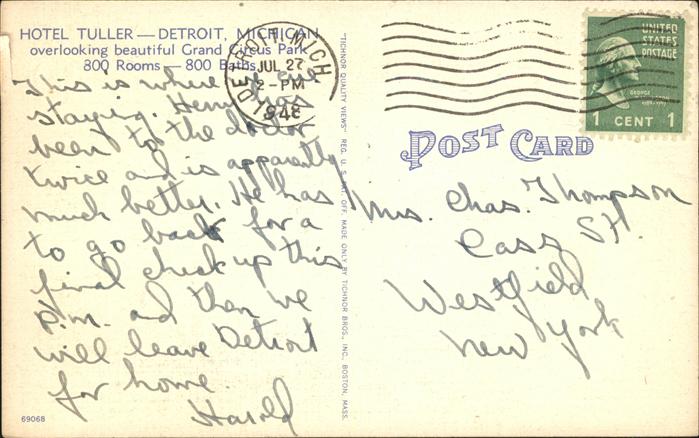 HOTEL TULLER — DETROIT, MICHIGAN
overlooking beautiful Grand Circus Park
800 Rooms — 800 Baths
This is where we are
staying. Henry has
been to the doctor
twice and is apparently
much better. He has
to go back for a
final check up this
p.m. and then we
will leave Detroit
for home.
Harold
69068
"TICHNOR QUALITY VIEWS" REG. U. S. PAT. OFF. MADE ONLY BY TICHNOR BROS., INC., BOSTON, MASS.
DETROIT, MICH
JUL 27
2 - PM
1948
UNITED
STATES
POSTAGE
GEORGE
WASHINGTON
1 CENT 1
POST CARD
Mrs. Chas. Thompson
Cass St.
Westfield
New York